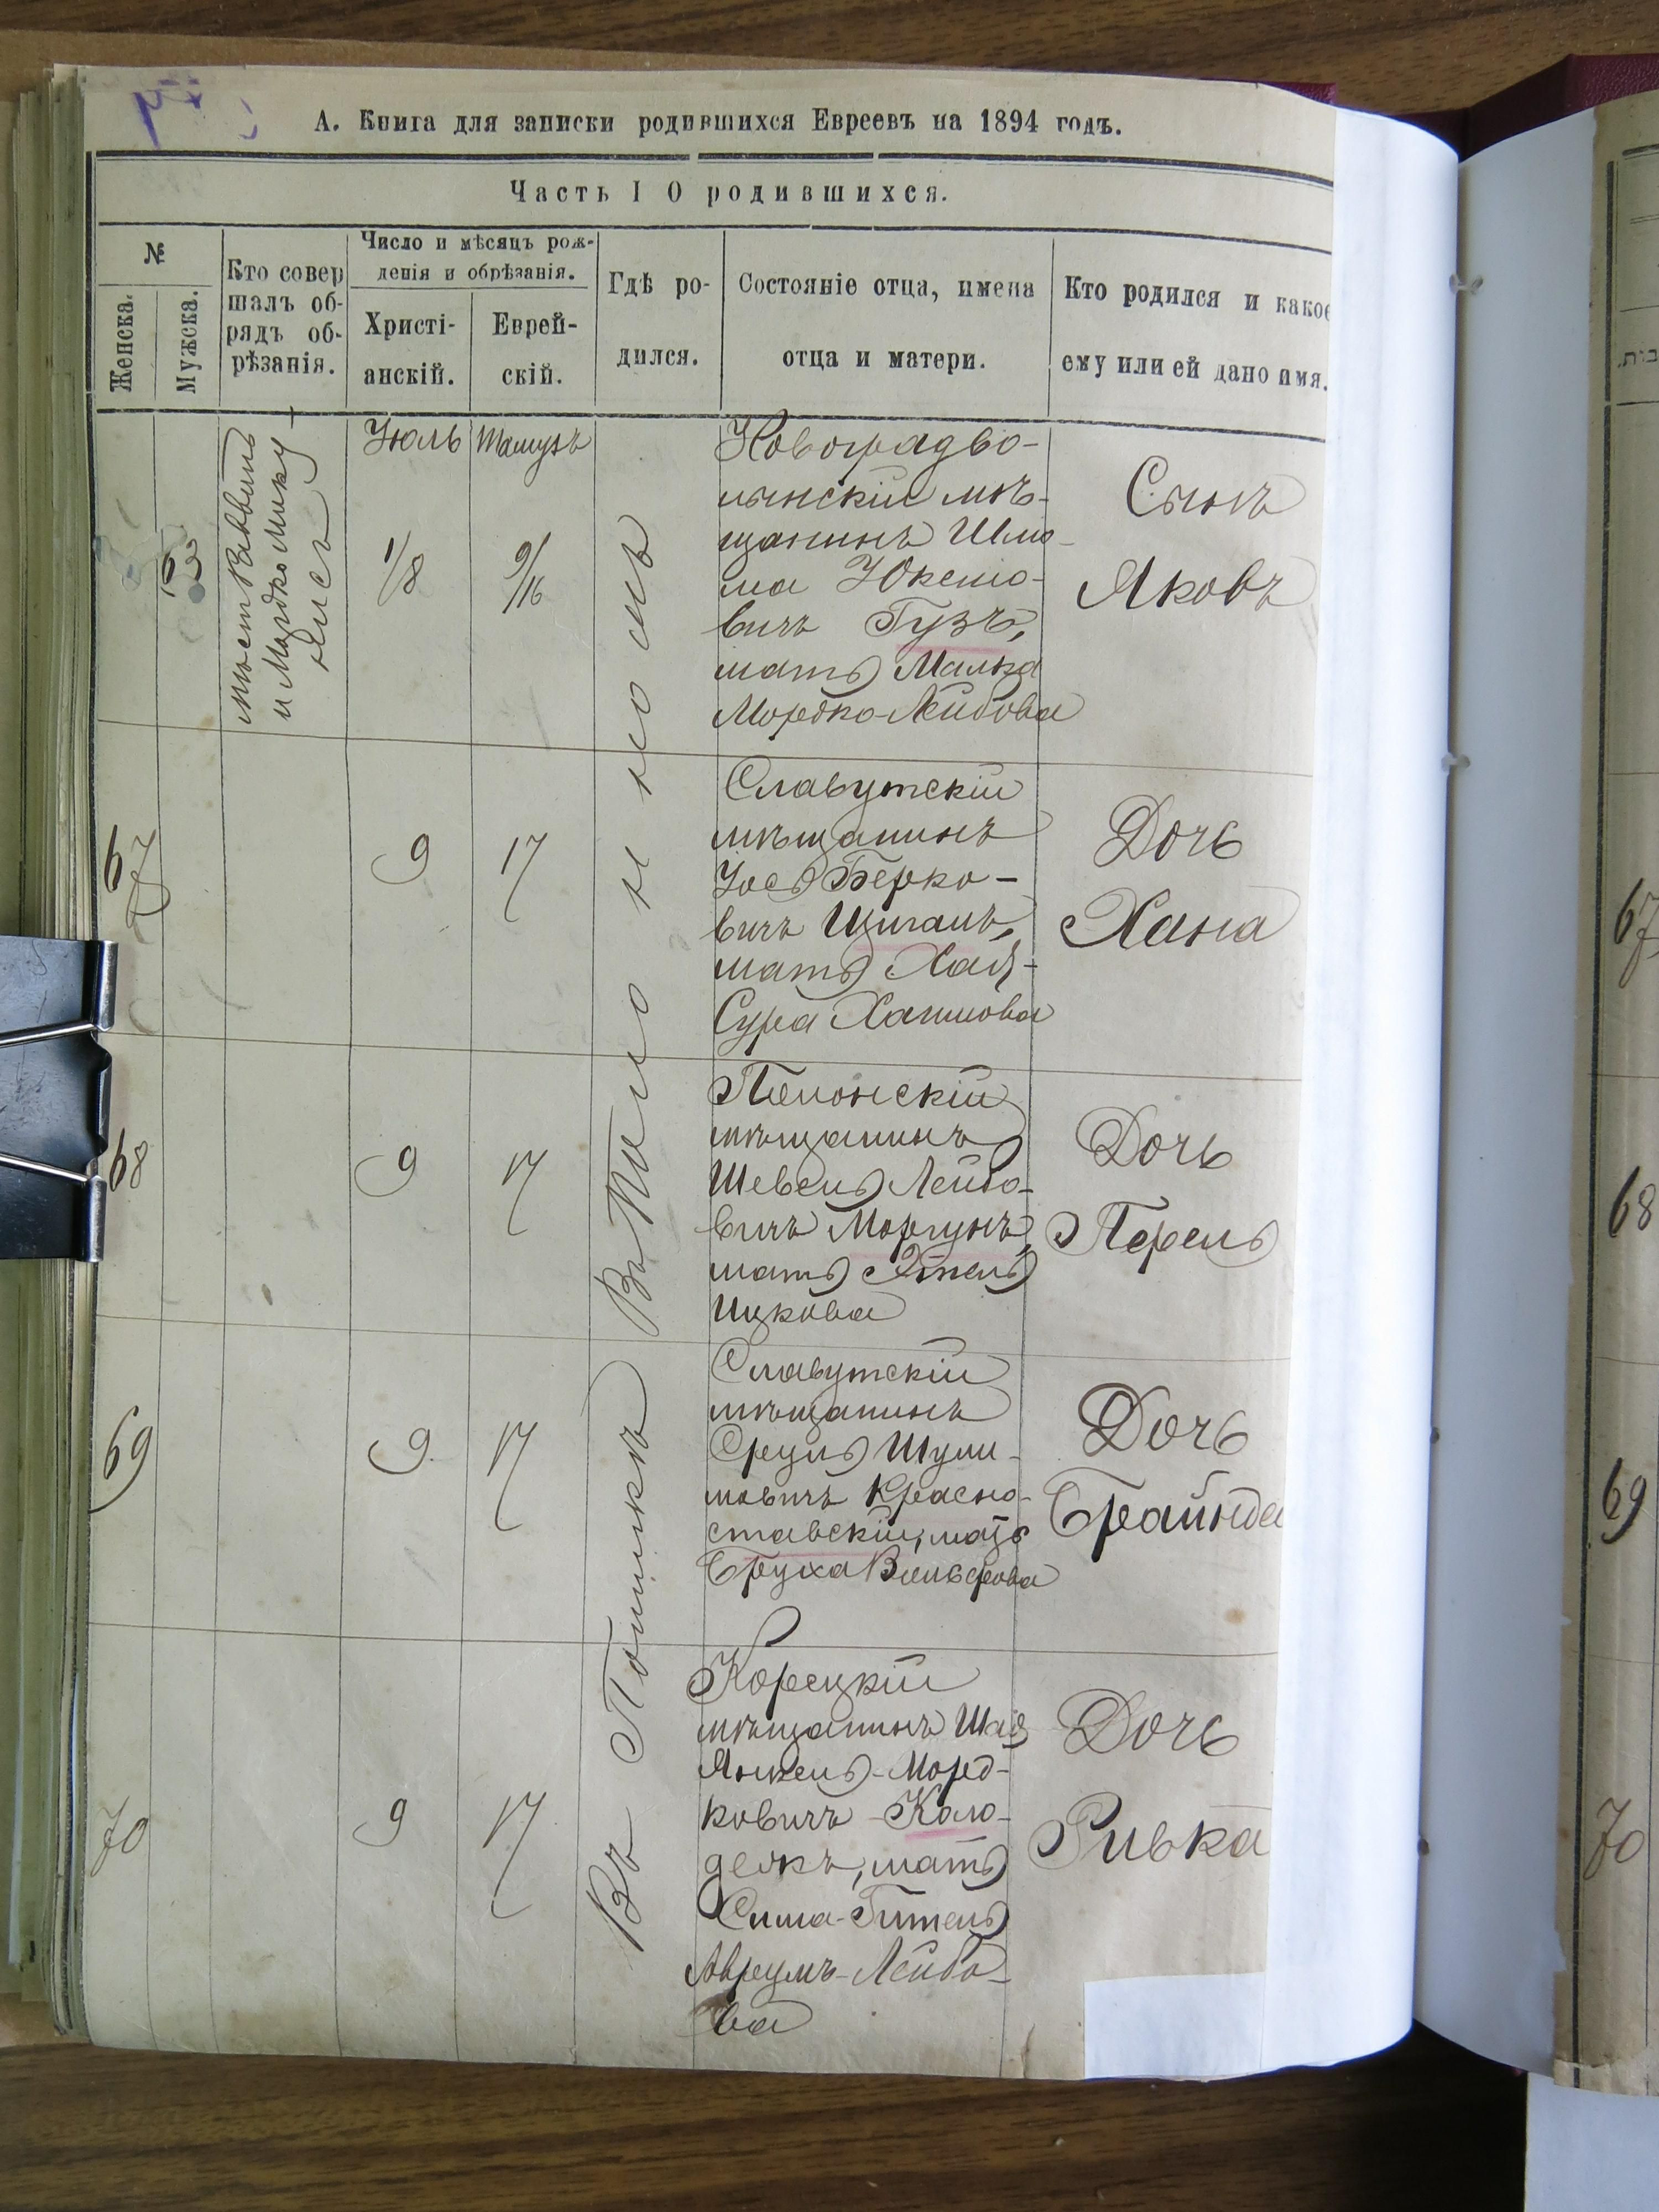 А. Книга для записки родившихся Евреевъ на 1894 годъ.
Часть I О родившихся.
№
Женска.
Мужска.
Кто совер
шалъ об-
рядъ об-
рѣзанія.
Число и мѣсяцъ рож-
денія и обрѣзанія.
Христі-
анскій.
Еврей-
скій.
Гдѣ ро-
дился.
Состояніе отца, имена
отца и матери.
Кто родился и какое
ему или ей дано имя.
и Мордко
Іюль
1/8
Тамузъ
9/16
Новоградво-
лынскій мѣ-
щанинъ Шлио-
ма
вичъ Гузъ,
мать Малка
Мордко-Лейбова
Сынъ
Яковъ
67
9
17
Славутскій
мѣщанинъ
Іось Берко-
вичъ Циганъ,
мать Хая-
Сура Хаимова
Дочь
Хана
68
9
17
Полонскій
мѣщанинъ
Шевель Лейбо-
вичъ Моргунъ,
мать Этель
Ицкова
Дочь
Перель
69
9
17
Славутскій
мѣщанинъ
Сруль Шули-
мовичъ Красно-
ставскій, мать
Бруха Вольфова
Дочь
Брайнда
70
9
17
Корецкій
мѣщанинъ Шая
Янкель-Морд-
ковичъ Коло-
дежъ, мать
Сима-Гитель
Аврумъ-Лейбо-
ва
Дочь
Ривка
Въ
67
68
69
70